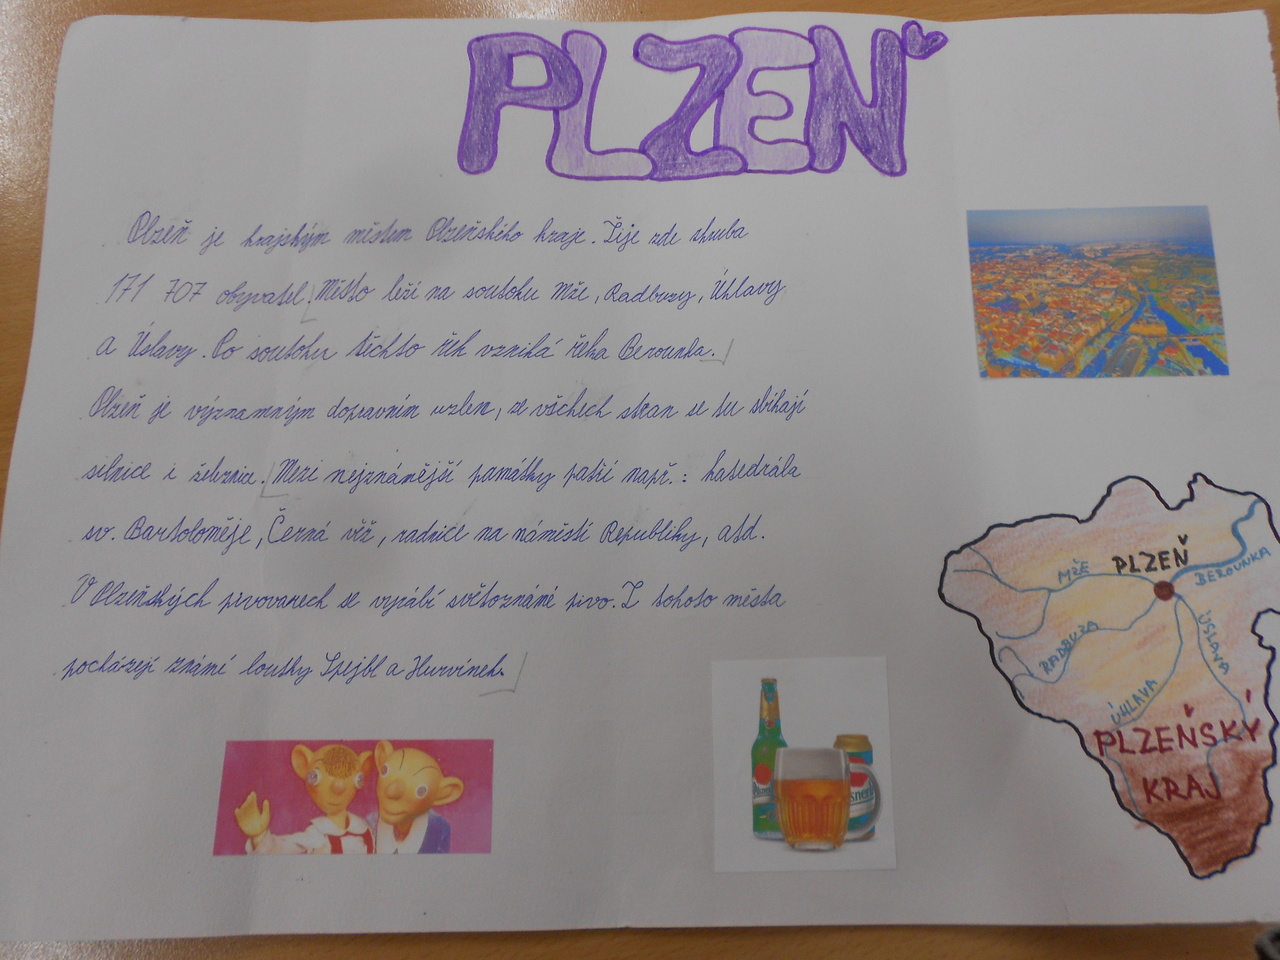 PLZEŇ
Plzeň je krajským městem Plzeňského kraje. Žije zde zhruba
171 707 obyvatel. Město leží na soutoku Mže, Radbuzy, Úhlavy
a Úslavy. Po soutoku těchto řek vzniká řeka Berounka.
Plzeň je významným dopravním uzlem, ze všech stran se tu sbíhají
silnice i železnice. Mezi nejznámější památky patří např.: katedrála
sv. Bartoloměje, Černá věž, radnice na náměstí Republiky, atd.
V Plzeňských pivovarech se vyrábí světoznámé pivo. Z tohoto města
pocházejí známé loutky Spejbl a Hurvínek.
PLZEŇ
MŽE
BEROUNKA
RADBUZA
ÚSLAVA
ÚHLAVA
PLZEŇSKÝ
KRAJ